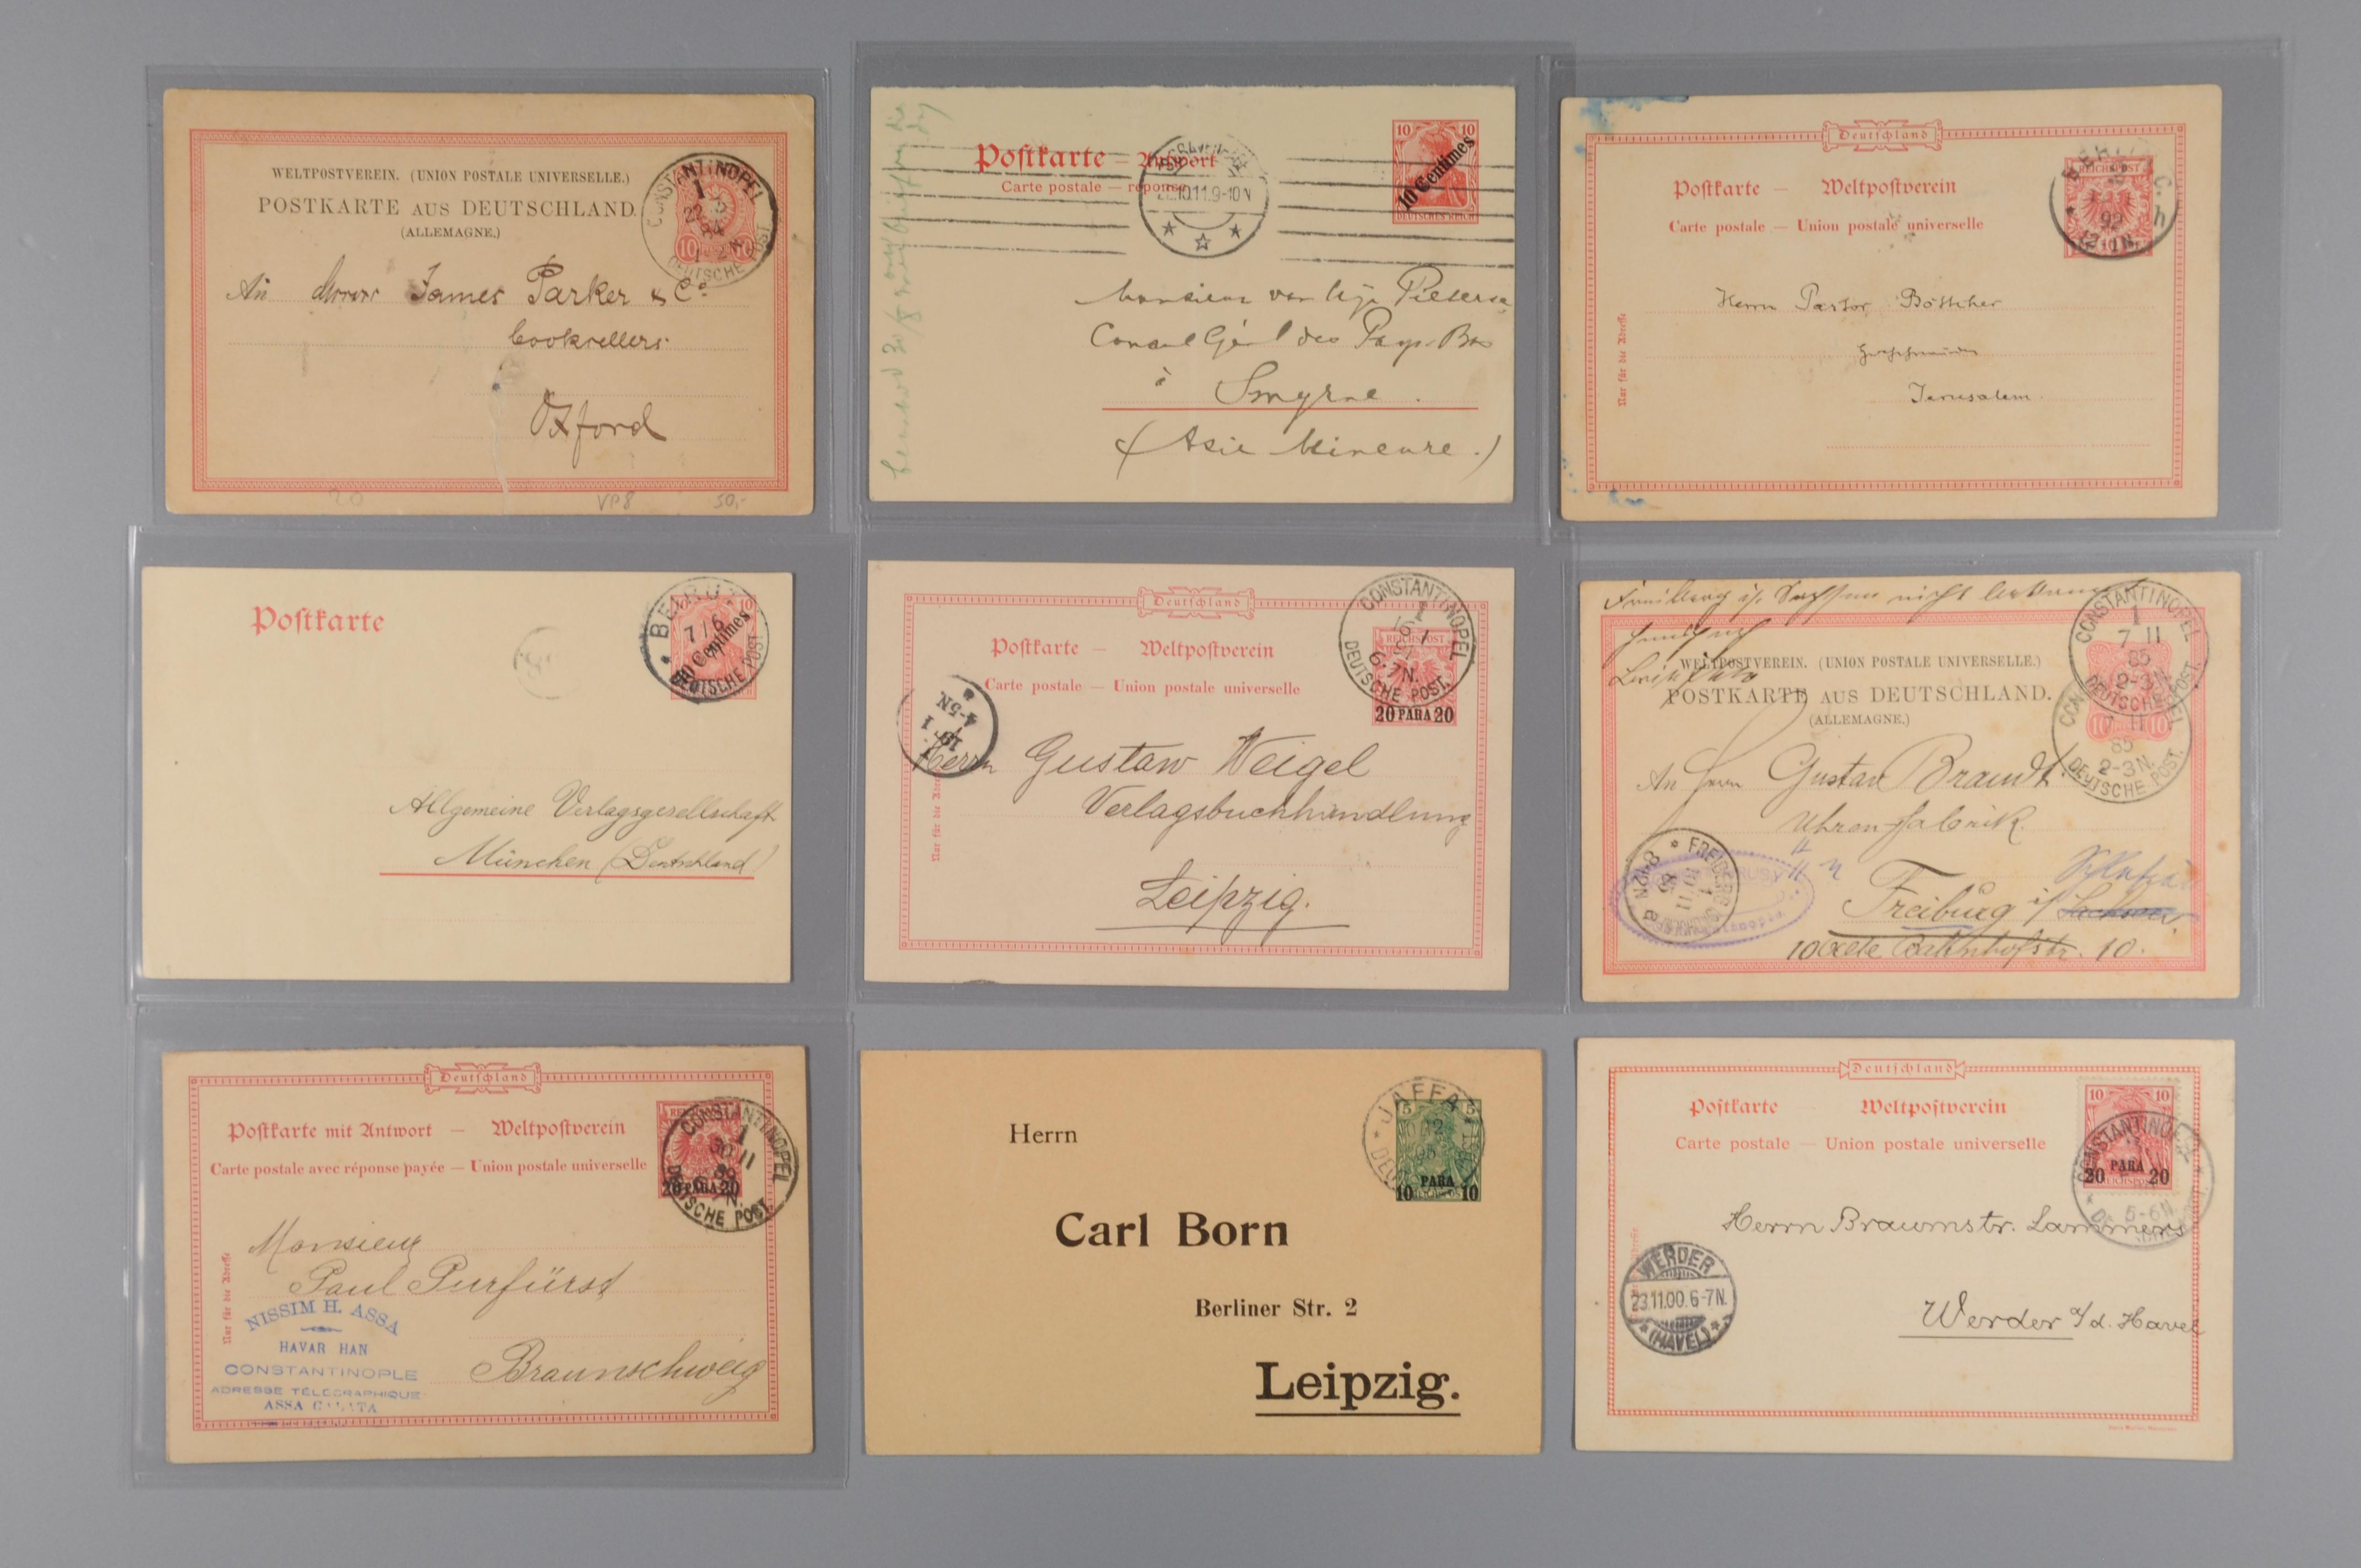 WELTPOSTVEREIN. (UNION POSTALE UNIVERSELLE.)
POSTKARTE AUS DEUTSCHLAND.
(ALLEMAGNE.)
CONSTANTINOPEL
1
22
84
1-2N
DEUTSCHE POST.
10
An
James Parker & Co
booksellers
Oxford
20
VP8
50,-
Postkarte — Antwort
Carte postale — réponse
10 10
10 Centimes
DEUTSCHES REICH
10.11.9-10N
Monsieur van der
Consul Gén'l des Pays-Bas
à Smyrne.
(Asie Mineure.)
Deutschland
Postkarte — Weltpostverein
Carte postale — Union postale universelle
REICHSPOST
BERLIN C.
92
12-1N
h
Herrn Pastor Böttcher
Jerusalem
Nur für die Adresse
Postkarte
10
10 Centimes
BEIRUT
7/6
DEUTSCHE POST
Allgemeine Verlagsgesellschaft
München (Deutschland)
Deutschland
Postkarte — Weltpostverein
Carte postale — Union postale universelle
REICHSPOST
20 PARA 20
CONSTANTINOPEL
1
6-7N.
DEUTSCHE POST.
19
1
4-5N
Herrn Gustav Weigel
Verlagsbuchhandlung
Leipzig.
Nur für die Adresse
WELTPOSTVEREIN. (UNION POSTALE UNIVERSELLE.)
POSTKARTE AUS DEUTSCHLAND.
(ALLEMAGNE.)
CONSTANTINOPEL
1
7 11
85
2-3N.
DEUTSCHE POST.
7 11
85
2-3N.
DEUTSCHE POST.
10
An Herrn Gustav Brandt.
Uhren-fabrik.
Freiburg i/ Sachsen
10 Bahnhofstr. 10.
FREIBERG
8-10N
Deutschland
Postkarte mit Antwort — Weltpostverein
Carte postale avec réponse payée — Union postale universelle
20 PARA 20
CONSTANTINOPEL
1
11
DEUTSCHE POST.
Monsieur
Paul Purfürst
Braunschweig
Nur für die Adresse
NISSIM H. ASSA
HAVAR HAN
CONSTANTINOPLE
ADRESSE TÉLÉGRAPHIQUE
ASSA GALATA
Herrn
Carl Born
Berliner Str. 2
Leipzig.
JAFFA
5 5
10 PARA 10
Deutschland
Postkarte — Weltpostverein
Carte postale — Union postale universelle
10 10
20 PARA 20
CONSTANTINOPEL
5-6N.
Herrn Braumstr. Lammers
Werder a/d. Havel
WERDER
23.11.00.6-7N.
(HAVEL)